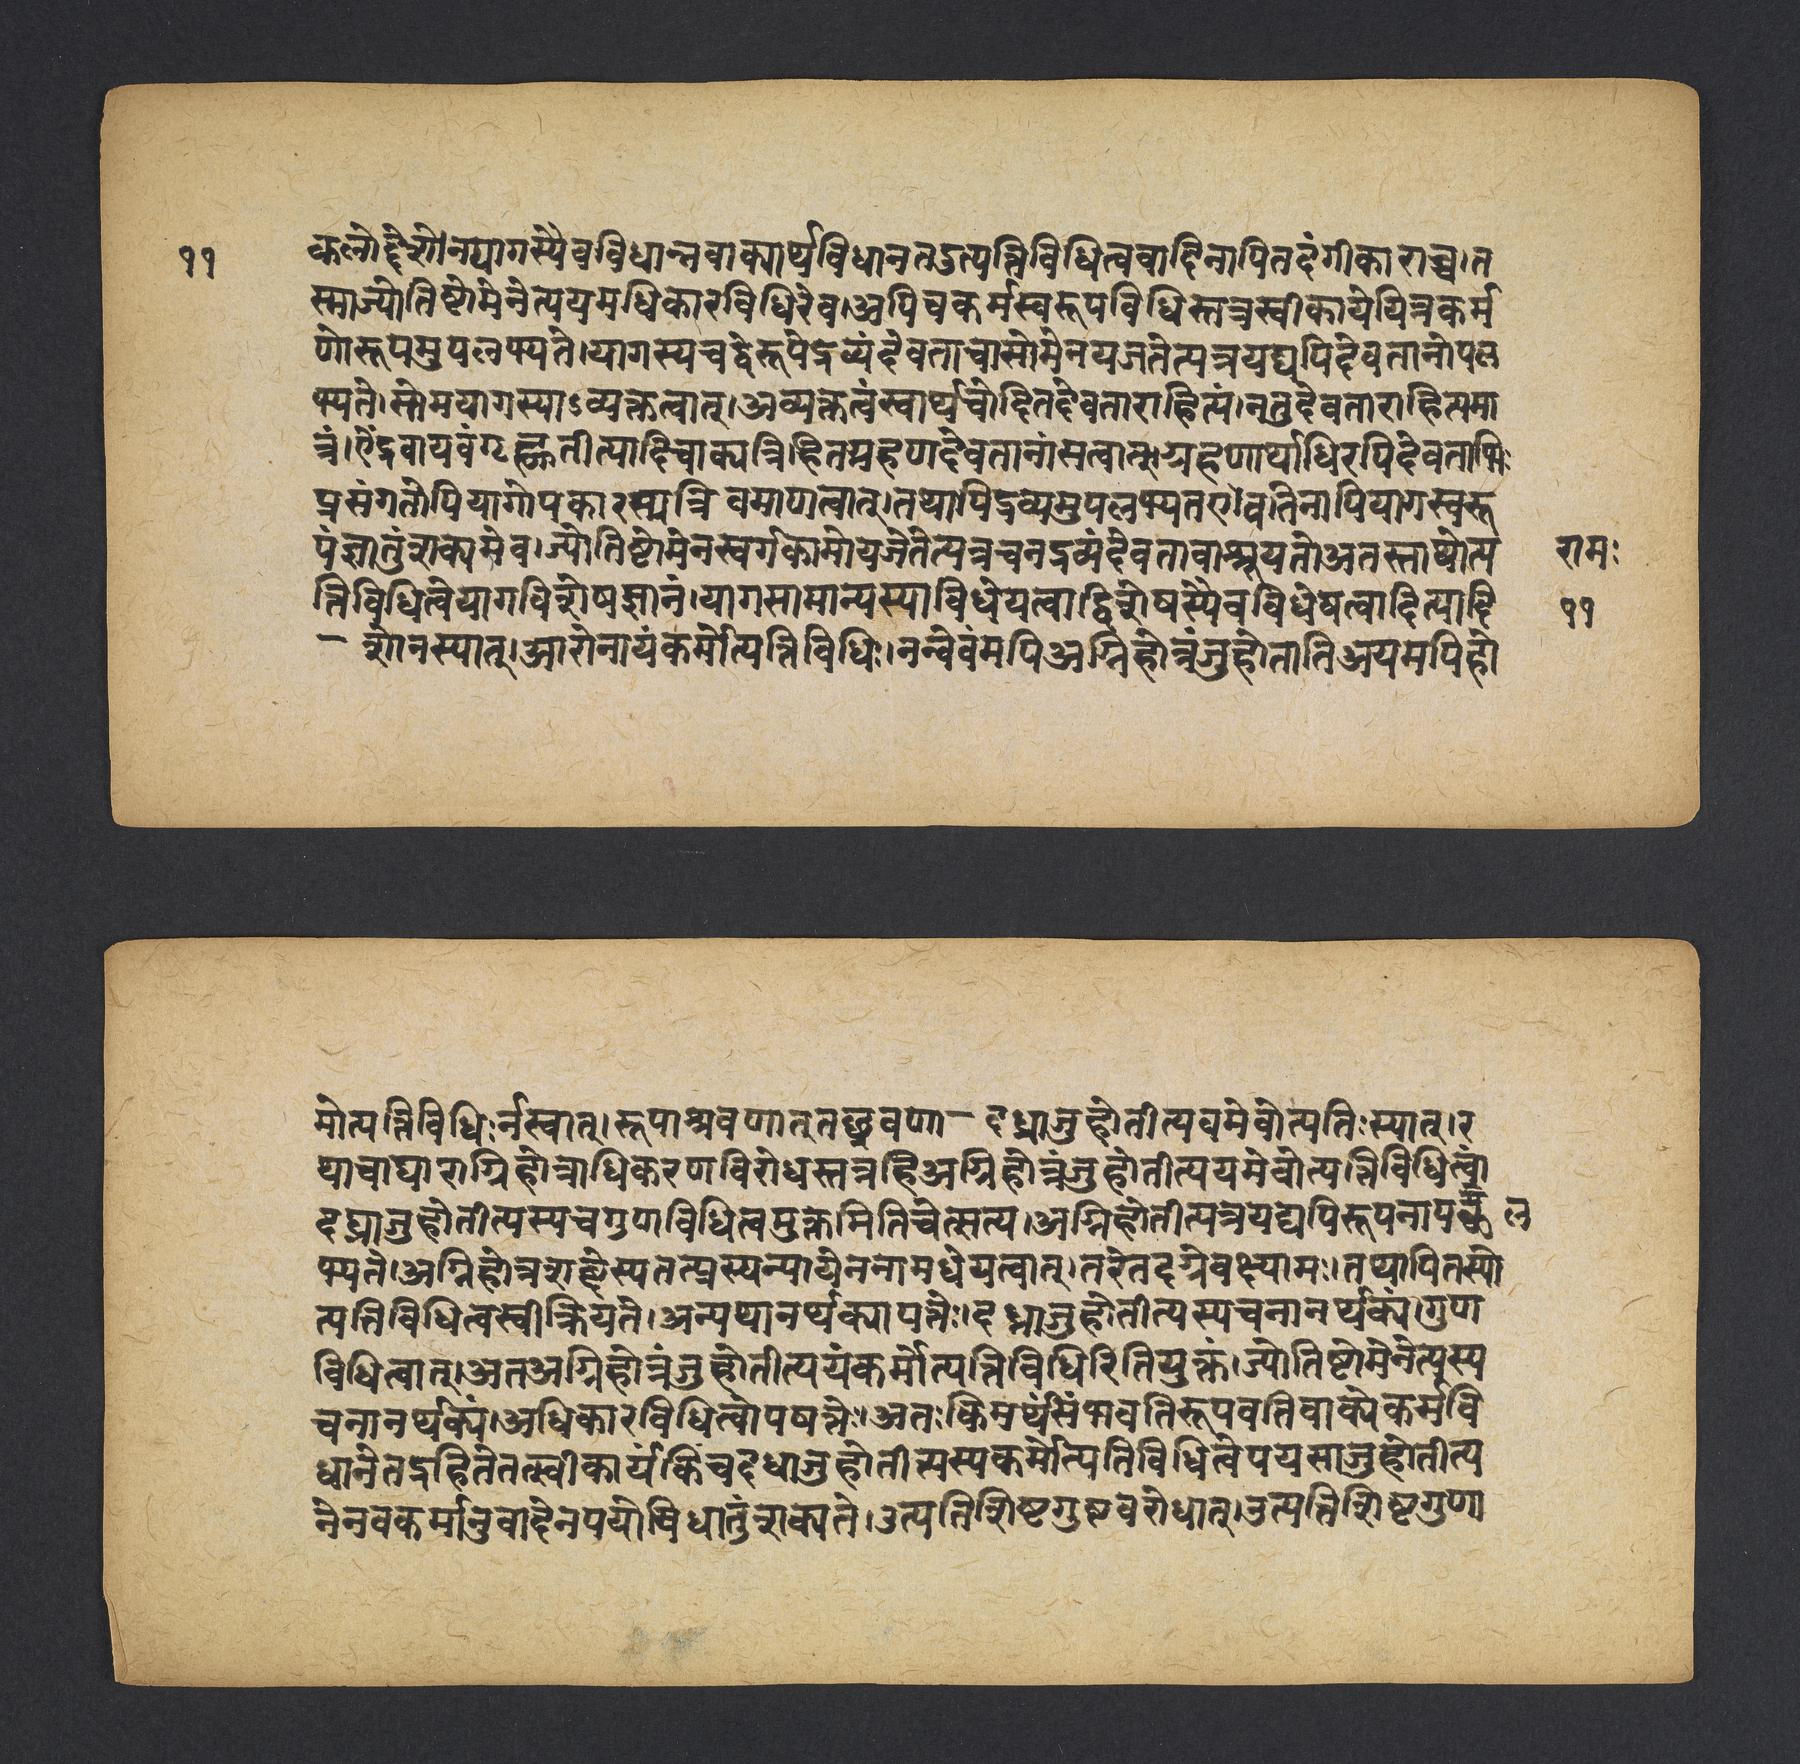 ११
फलोद्देशेनयागस्यैवविधान्नवाक्यार्थविधानतदुत्पत्तिविधित्ववादिनापितदंगीकाराच्च।त
स्माज्योतिष्टोमेनेत्ययमधिकारविधिरेव।अपिचकर्मस्वरूपविधिस्तत्रस्वीकार्येयत्रकर्म
णोरूपमुपलभ्यते।यागस्यचद्वेरूपेद्रव्यंदेवताचासोमेनयजतेत्यत्रयद्यपिदेवतानोपल
भ्यते।सोमयागस्याऽव्यक्तत्वात्।अव्यक्तत्वंस्वार्थचोदितदेवताराहित्यं।नतुदेवताराहित्यमा
त्रं।ऐंद्रवायवंगृह्णातीत्यादिवाक्यन्निहितग्रहणदेवतानांसत्वात्।ग्रहणार्थाधिरपिदेवताभिः
प्रसंगतोपियागोपकारस्यन्नि वमाणत्वात्।तथापिद्रव्यमुपलभ्यतए।वतेनापियागस्वरू
पंज्ञातुंशक्यमेव।ज्योतिष्टोमेनस्वर्गकामोयजेतेत्यत्रचनद्रव्यंदेवतावाश्रूयते।अतस्तार्थोत्प
त्तिविधित्वेयागविशेषज्ञानं।यागसामान्यस्याविधेयत्वाद्विशेषस्यैवविधेयत्वादित्यादि
- शेनस्यात्।अारोनायंकर्मोत्पत्तिविधिः।नन्वेवंमपिअग्निहोत्रंजुहोतातिअयमपिहो
रामः
११
मोत्पत्तिविधिःर्नस्यात्।रूपाश्रवणात्तछ्रवणा- दध्नाजुहोतीत्यवमेवोत्पतिःस्यात्।र
थाचाघाराग्निहोत्राधिकरणविरोधस्तत्रहिअग्निहोत्रंजुहोतीत्ययमेवोत्पत्तिविधित्वं।
दघ्नाजुहोतीत्यस्यचगुणविधित्वमुक्तमितिचेत्सत्य।अग्निहोतीत्यत्रयद्येपिरूपनाप ल
भ्यते।अग्निहोत्रशब्देस्यतत्प्रस्यन्यायेननामधेयत्वात्।तरेतदग्रेवक्ष्यामः।तथापितस्यो
त्पत्तिविधित्वस्वीक्रियते।अन्यथानर्थक्यापत्तेः।दध्नाजुहोतीत्यस्यचनानर्थक्यं।गुण
विधित्वात्।अतअग्निहोत्रंजुहोतीत्ययंकर्मोत्पत्तिविधिरितियुक्तं।ज्योतिष्टोमेनेत्यस्य
चनानर्थक्यं।अधिकारविधित्वोपषत्तेः।अतःकिमर्थंसंभवतिरूपवतिवाक्येकर्मवि
धानेतद्रहितेतत्स्वीकार्यंकिंचदधाजुहोतीत्यस्यकर्मोत्पतिविधित्वेपयसाजुहोतीत्य
नेनवकर्मानुवादेनपयोविधातुंशक्यते।उत्पतिशिष्टगुणवरोधात्।उत्पत्तिशिष्टगुणा